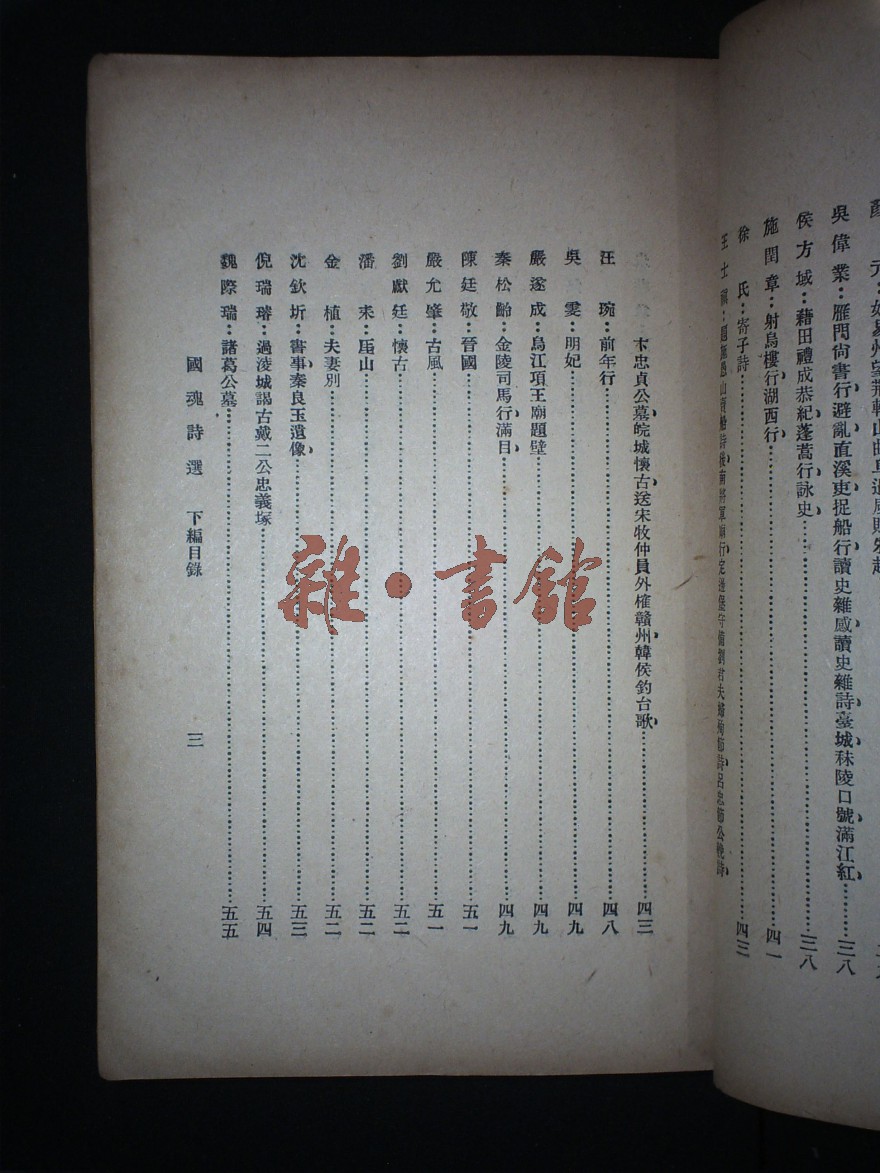 元：
吳偉業：雁門尙書行避亂直溪吏捉船行讀史雜感讀史雜詩臺城秣陵口號滿江紅……三八
侯方域：藉田禮成恭紀蓬蒿行詠史……三八
施閏章：射烏樓行湖西行……四一
徐　氏：寄子詩……四三
王士禛：
卞忠貞公墓皖城懷古送宋牧仲員外榷贛州韓侯釣台歌……四三
汪　琬：前年行……四八
吳　雯：明妃……四九
嚴遂成：烏江項王廟題壁……四九
秦松齡：金陵司馬行滿目……四九
陳廷敬：晉國……五一
嚴允肇：古風……五一
劉獻廷：懷古……五二
潘　耒：厓山……五二
金　植：夫妻別……五二
沈欽圻：書事秦良玉遺像……五三
倪瑞璿：過淩城謁古戴二公忠義塚……五四
魏際瑞：諸葛公墓……五五
國魂詩選　下編目錄　三
雜·書館